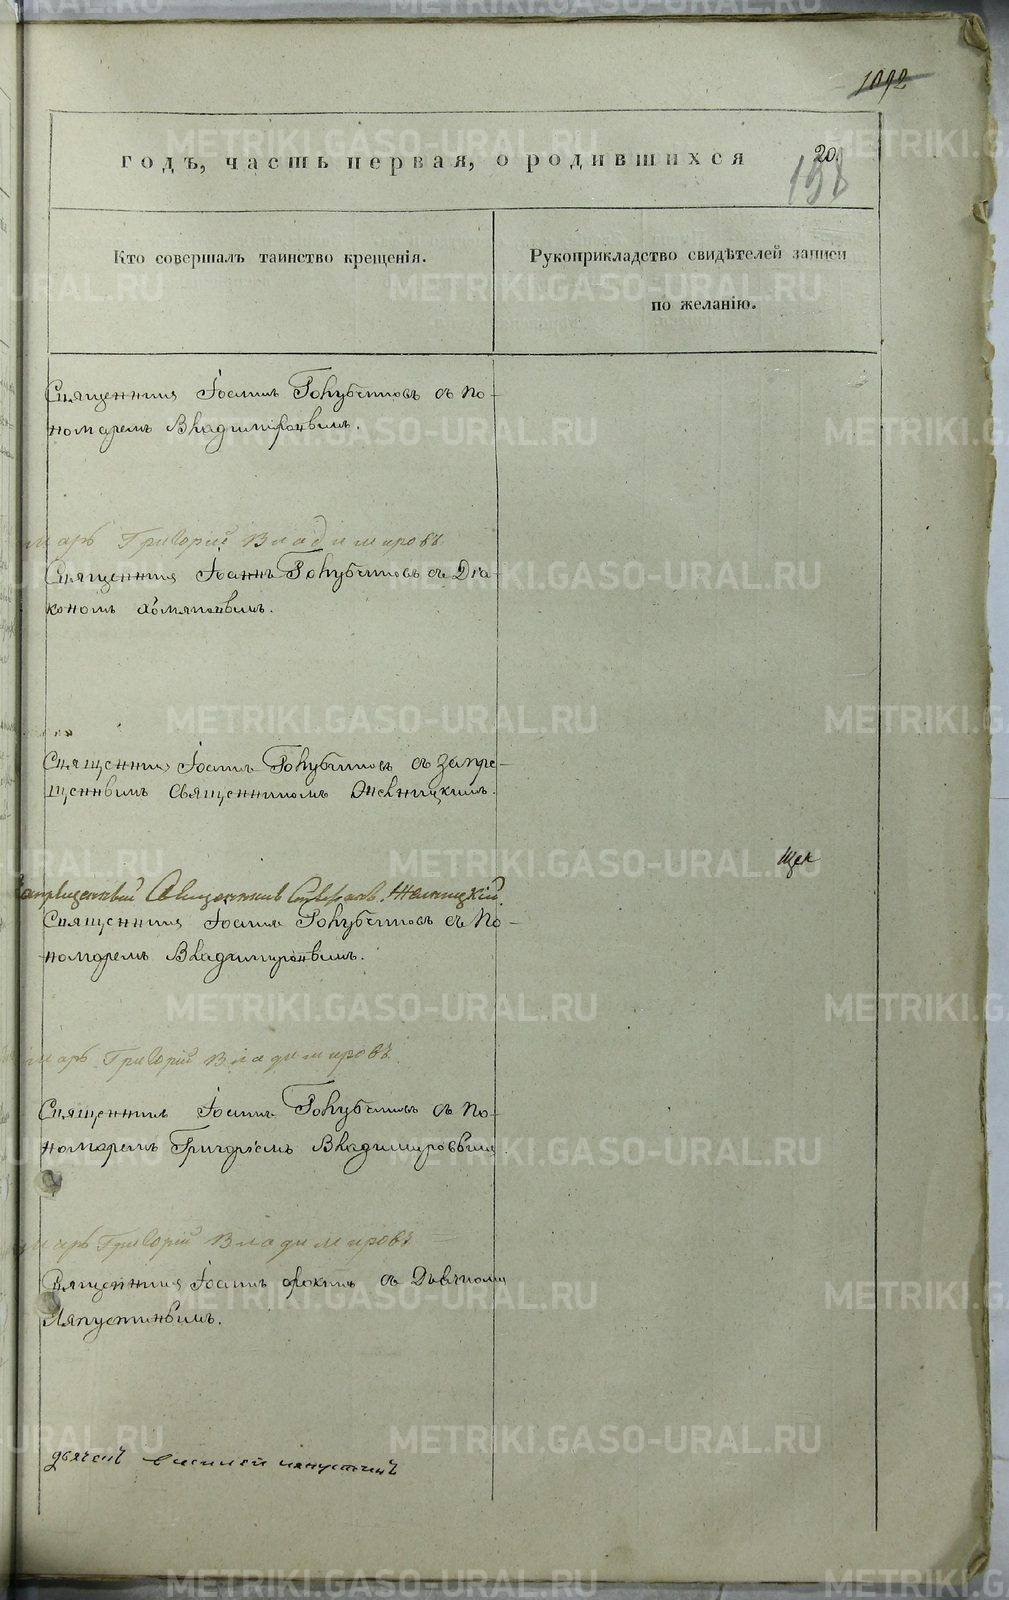 1092
годъ, часть первая, о родившихся
20.
198
Кто совершалъ таинство крещенія.
Рукоприкладство свидѣтелей записи
по желанію.
Священникъ Іоаннъ Голубчиковъ съ по-
номаремъ Владимировымъ.
марь Григорій Владимировъ
Священникъ Іоаннъ Голубчиковъ съ Діа-
кономъ Хомяковымъ.
Священникъ Іоаннъ Голубчиковъ съ запре-
щеннымъ священникомъ
Запрещенный Священникъ Стефанъ
Священникъ Іоаннъ Голубчиковъ съ По-
номаремъ Владимировымъ.
марь Григорій Владимировъ.
Священникъ Іоаннъ Голубчиковъ съ По-
номаремъ Григоріемъ Владимировымъ
марь Григорій Владимировъ
Священникъ Іоаннъ съ Дьячкомъ
Ляпустинымъ.
дьячекъ василей ляпустинъ
METRIKI.GASO-URAL.RU